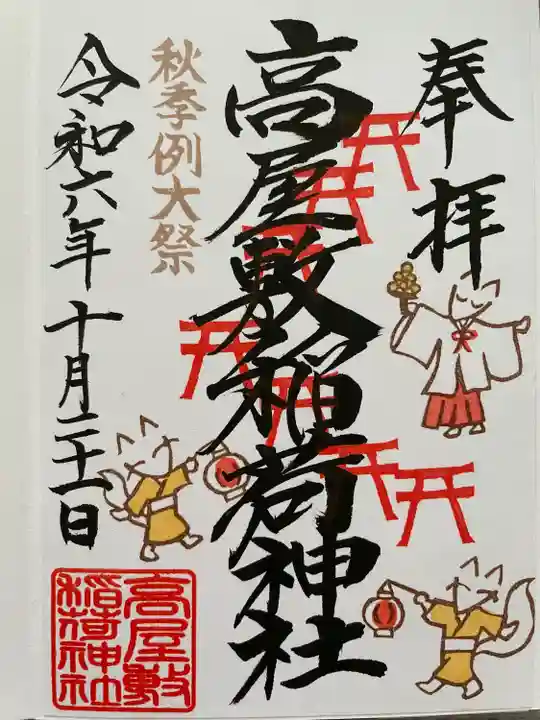 奉拝
高屋敷稲荷神社
秋季例大祭
令和六年十月二十一日
高屋敷
稲荷神社